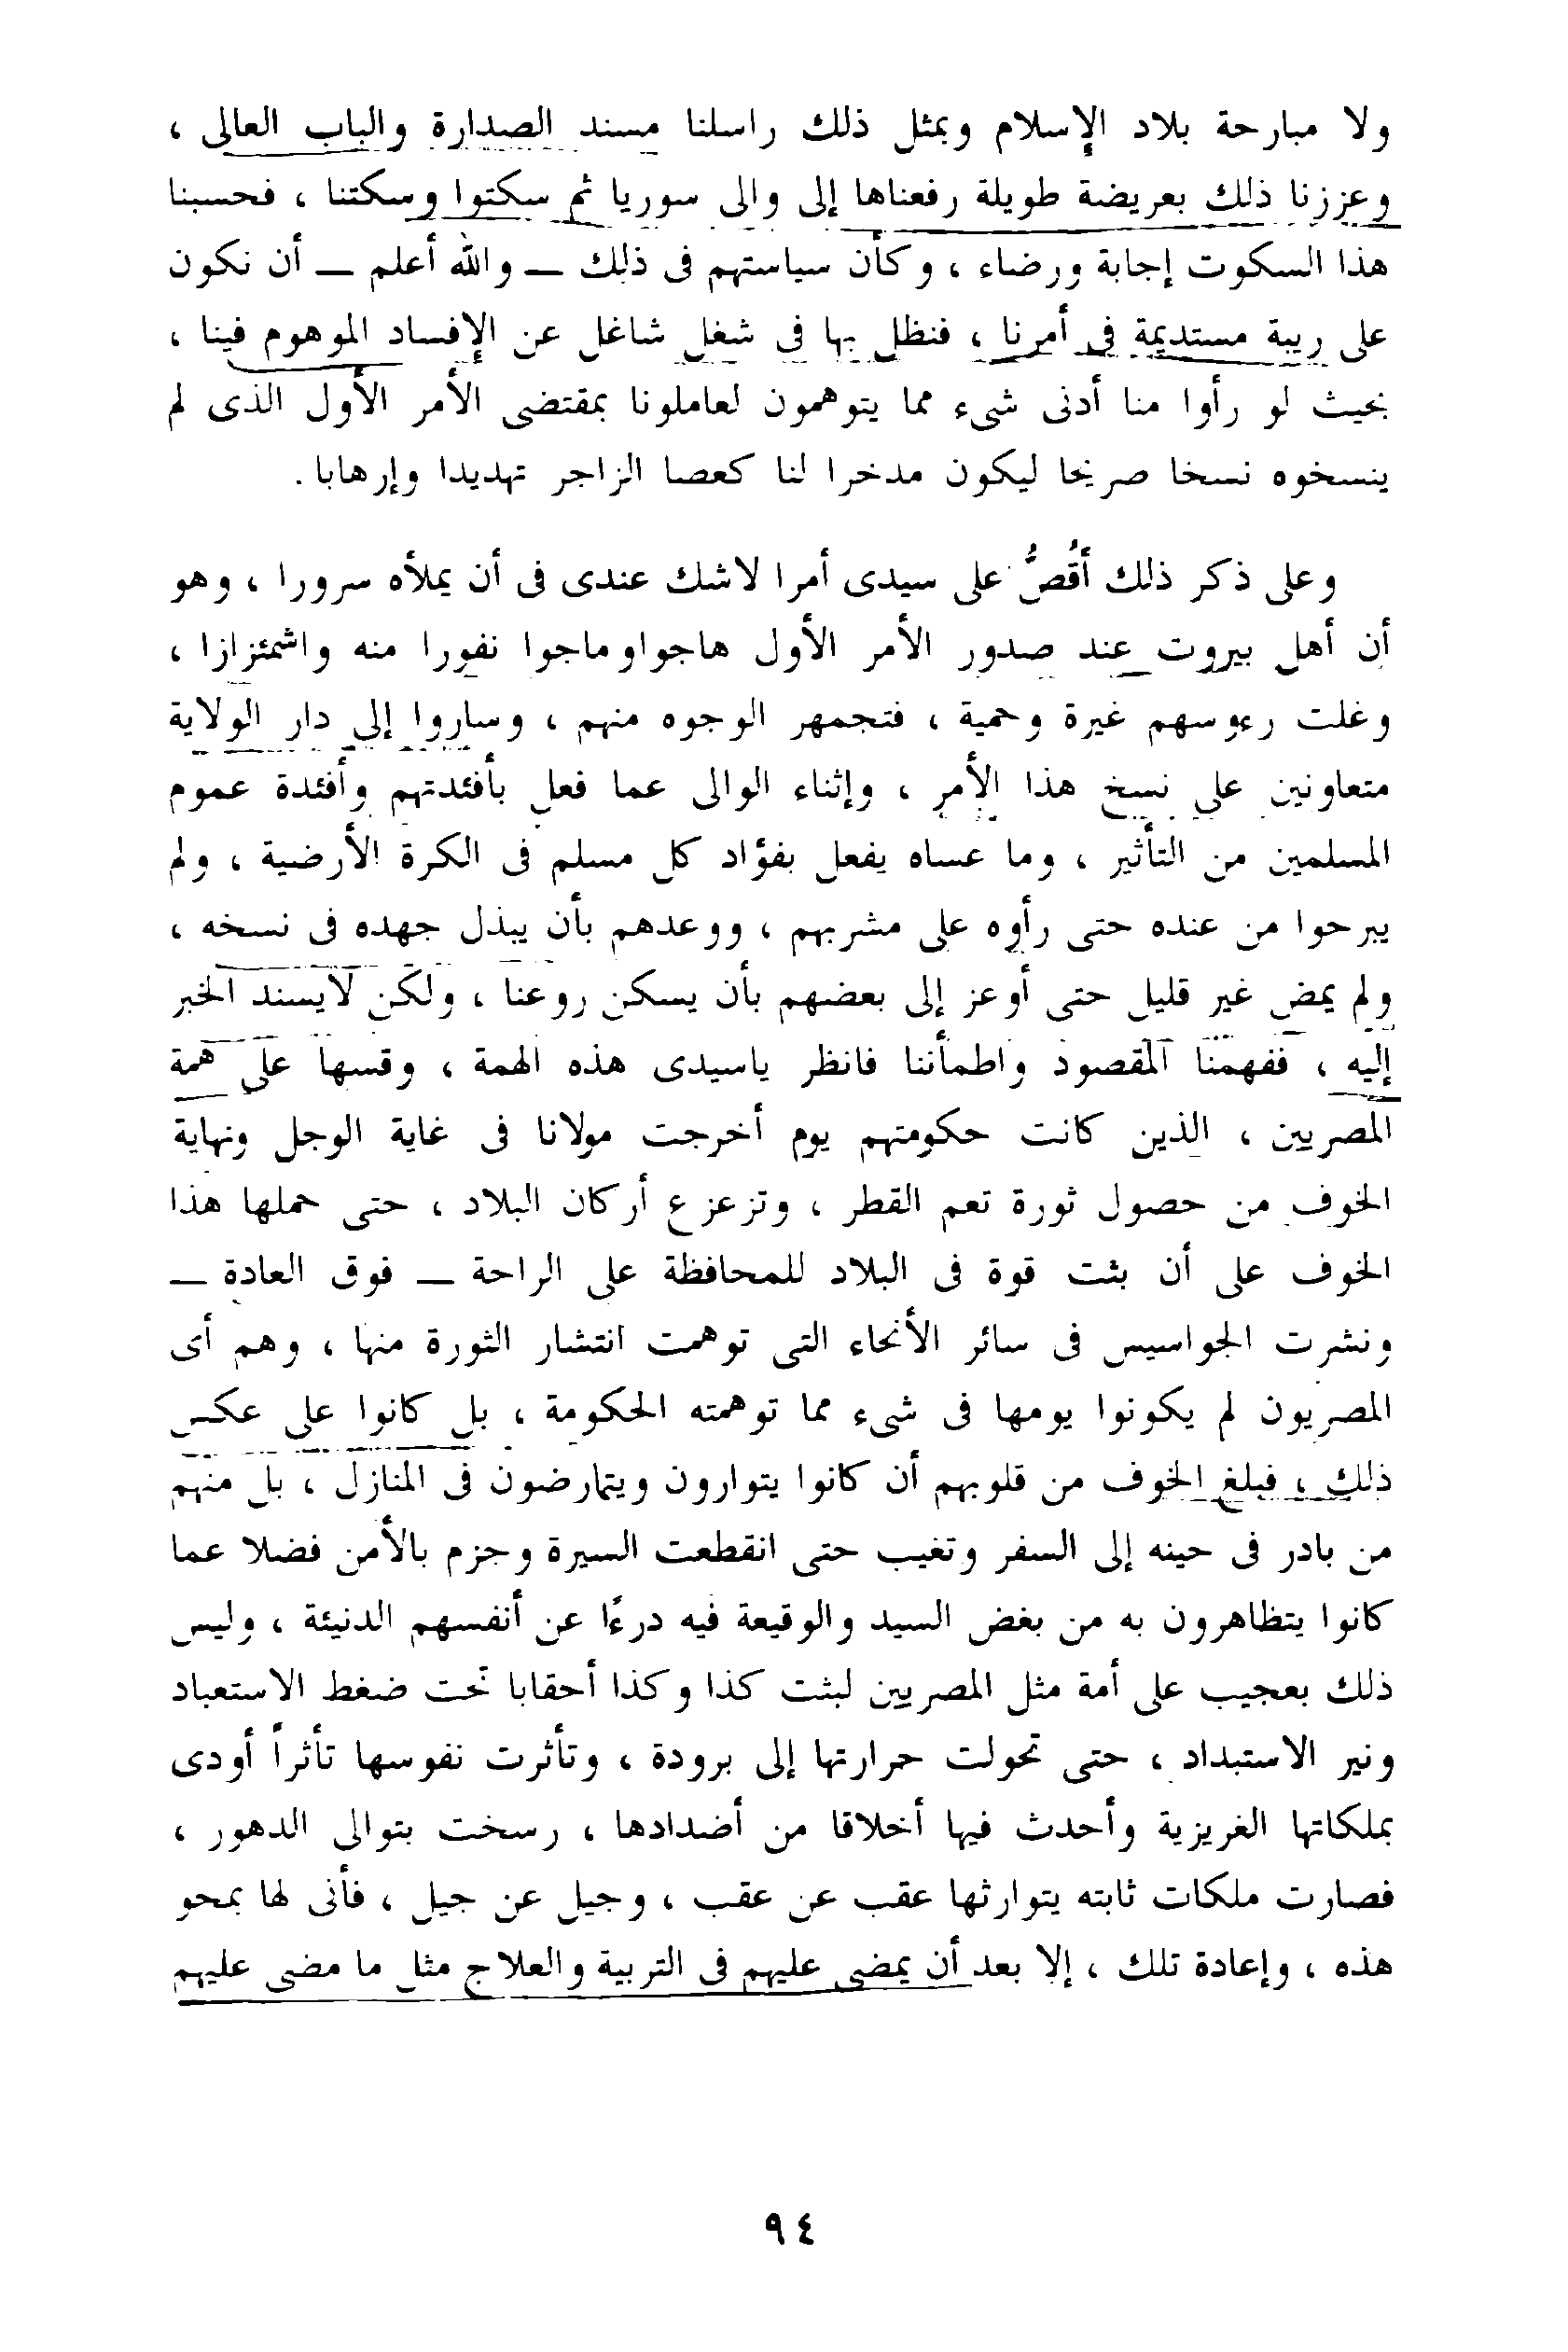 ولا مبارحة بلاد الإسلام وبمثل ذلك راسلنا مسند الصدارة والباب العالى ،
وعززنا ذلك بعريضة طويلة رفعناها إلى والى سوريا ثم سكتوا وسكتنا ، فحسبنا
هذا السكوت إجابة ورضاء ، وكأن سياستهم فى ذلك — والله أعلم — أن نكون
على ريبة مستديمة فى أمرنا ، فنظل بها فى شغل شاغل عن الإفساد الموهوم فينا ،
بحيث لو رأوا منا أدنى شىء مما يتوهمون لعاملونا بمقتضى الأمر الأول الذى لم
ينسخوه نسخا صريحا ليكون مدخرا لنا كعصا الزاجر تهديدا وإرهابا .
وعلى ذكر ذلك أقُصُّ على سيدى أمرا لاشك عندى فى أن يملأه سرورا ، وهو
أن أهل بيروت عند صدور الأمر الأول هاجواوماجوا نفورا منه واشمئزازا ،
وغلت رءوسهم غيرة وحمية ، فتجمهر الوجوه منهم ، وساروا إلى دار الولاية
متعاونين على نسخ هذا الأمر ، وإثناء الوالى عما فعل بأفئدتهم وأفئدة عموم
المسلمين من التأثير ، وما عساه يفعل بفؤاد كل مسلم فى الكرة الأرضية ، ولم
يبرحوا من عنده حتى رأوه على مشربهم ، ووعدهم بأن يبذل جهده فى نسخه ،
ولم يمض غير قليل حتى أوعز إلى بعضهم بأن يسكن روعنا ، ولكن لايسند الخبر
إليه ، ففهمنا المقصود واطمأننا فانظر ياسيدى هذه الهمة ، وقسها على همة
المصريين ، الذين كانت حكومتهم يوم أخرجت مولانا فى غاية الوجل ونهاية
الخوف من حصول ثورة تعم القطر ، وتزعزع أركان البلاد ، حتى حملها هذا
الخوف على أن بثت قوة فى البلاد للمحافظة على الراحة — فوق العادة —
ونشرت الجواسيس فى سائر الأنحاء التى توهمت انتشار الثورة منها ، وهم أى
المصريون لم يكونوا يومها فى شىء مما توهمته الحكومة ، بل كانوا على عكس
ذلك ، فبلغ الخوف من قلوبهم أن كانوا يتوارون ويتمارضون فى المنازل ، بل منهم
من بادر فى حينه إلى السفر وتغيب حتى انقطعت السيرة وجزم بالأمن فضلا عما
كانوا يتظاهرون به من بغض السيد والوقيعة فيه درءًا عن أنفسهم الدنيئة ، وليس
ذلك بعجيب على أمة مثل المصريين لبثت كذا وكذا أحقابا تحت ضغط الاستعباد
ونير الاستبداد ، حتى تحولت حرارتها إلى برودة ، وتأثرت نفوسها تأثراً أودى
بملكاتها الغريزية وأحدث فيها أخلاقا من أضدادها ، رسخت بتوالى الدهور ،
فصارت ملكات ثابته يتوارثها عقب عن عقب ، وجيل عن جيل ، فأنى لها بمحو
هذه ، وإعادة تلك ، إلا بعد أن يمضى عليهم فى التربية والعلاج مثل ما مضى عليهم
٩٤